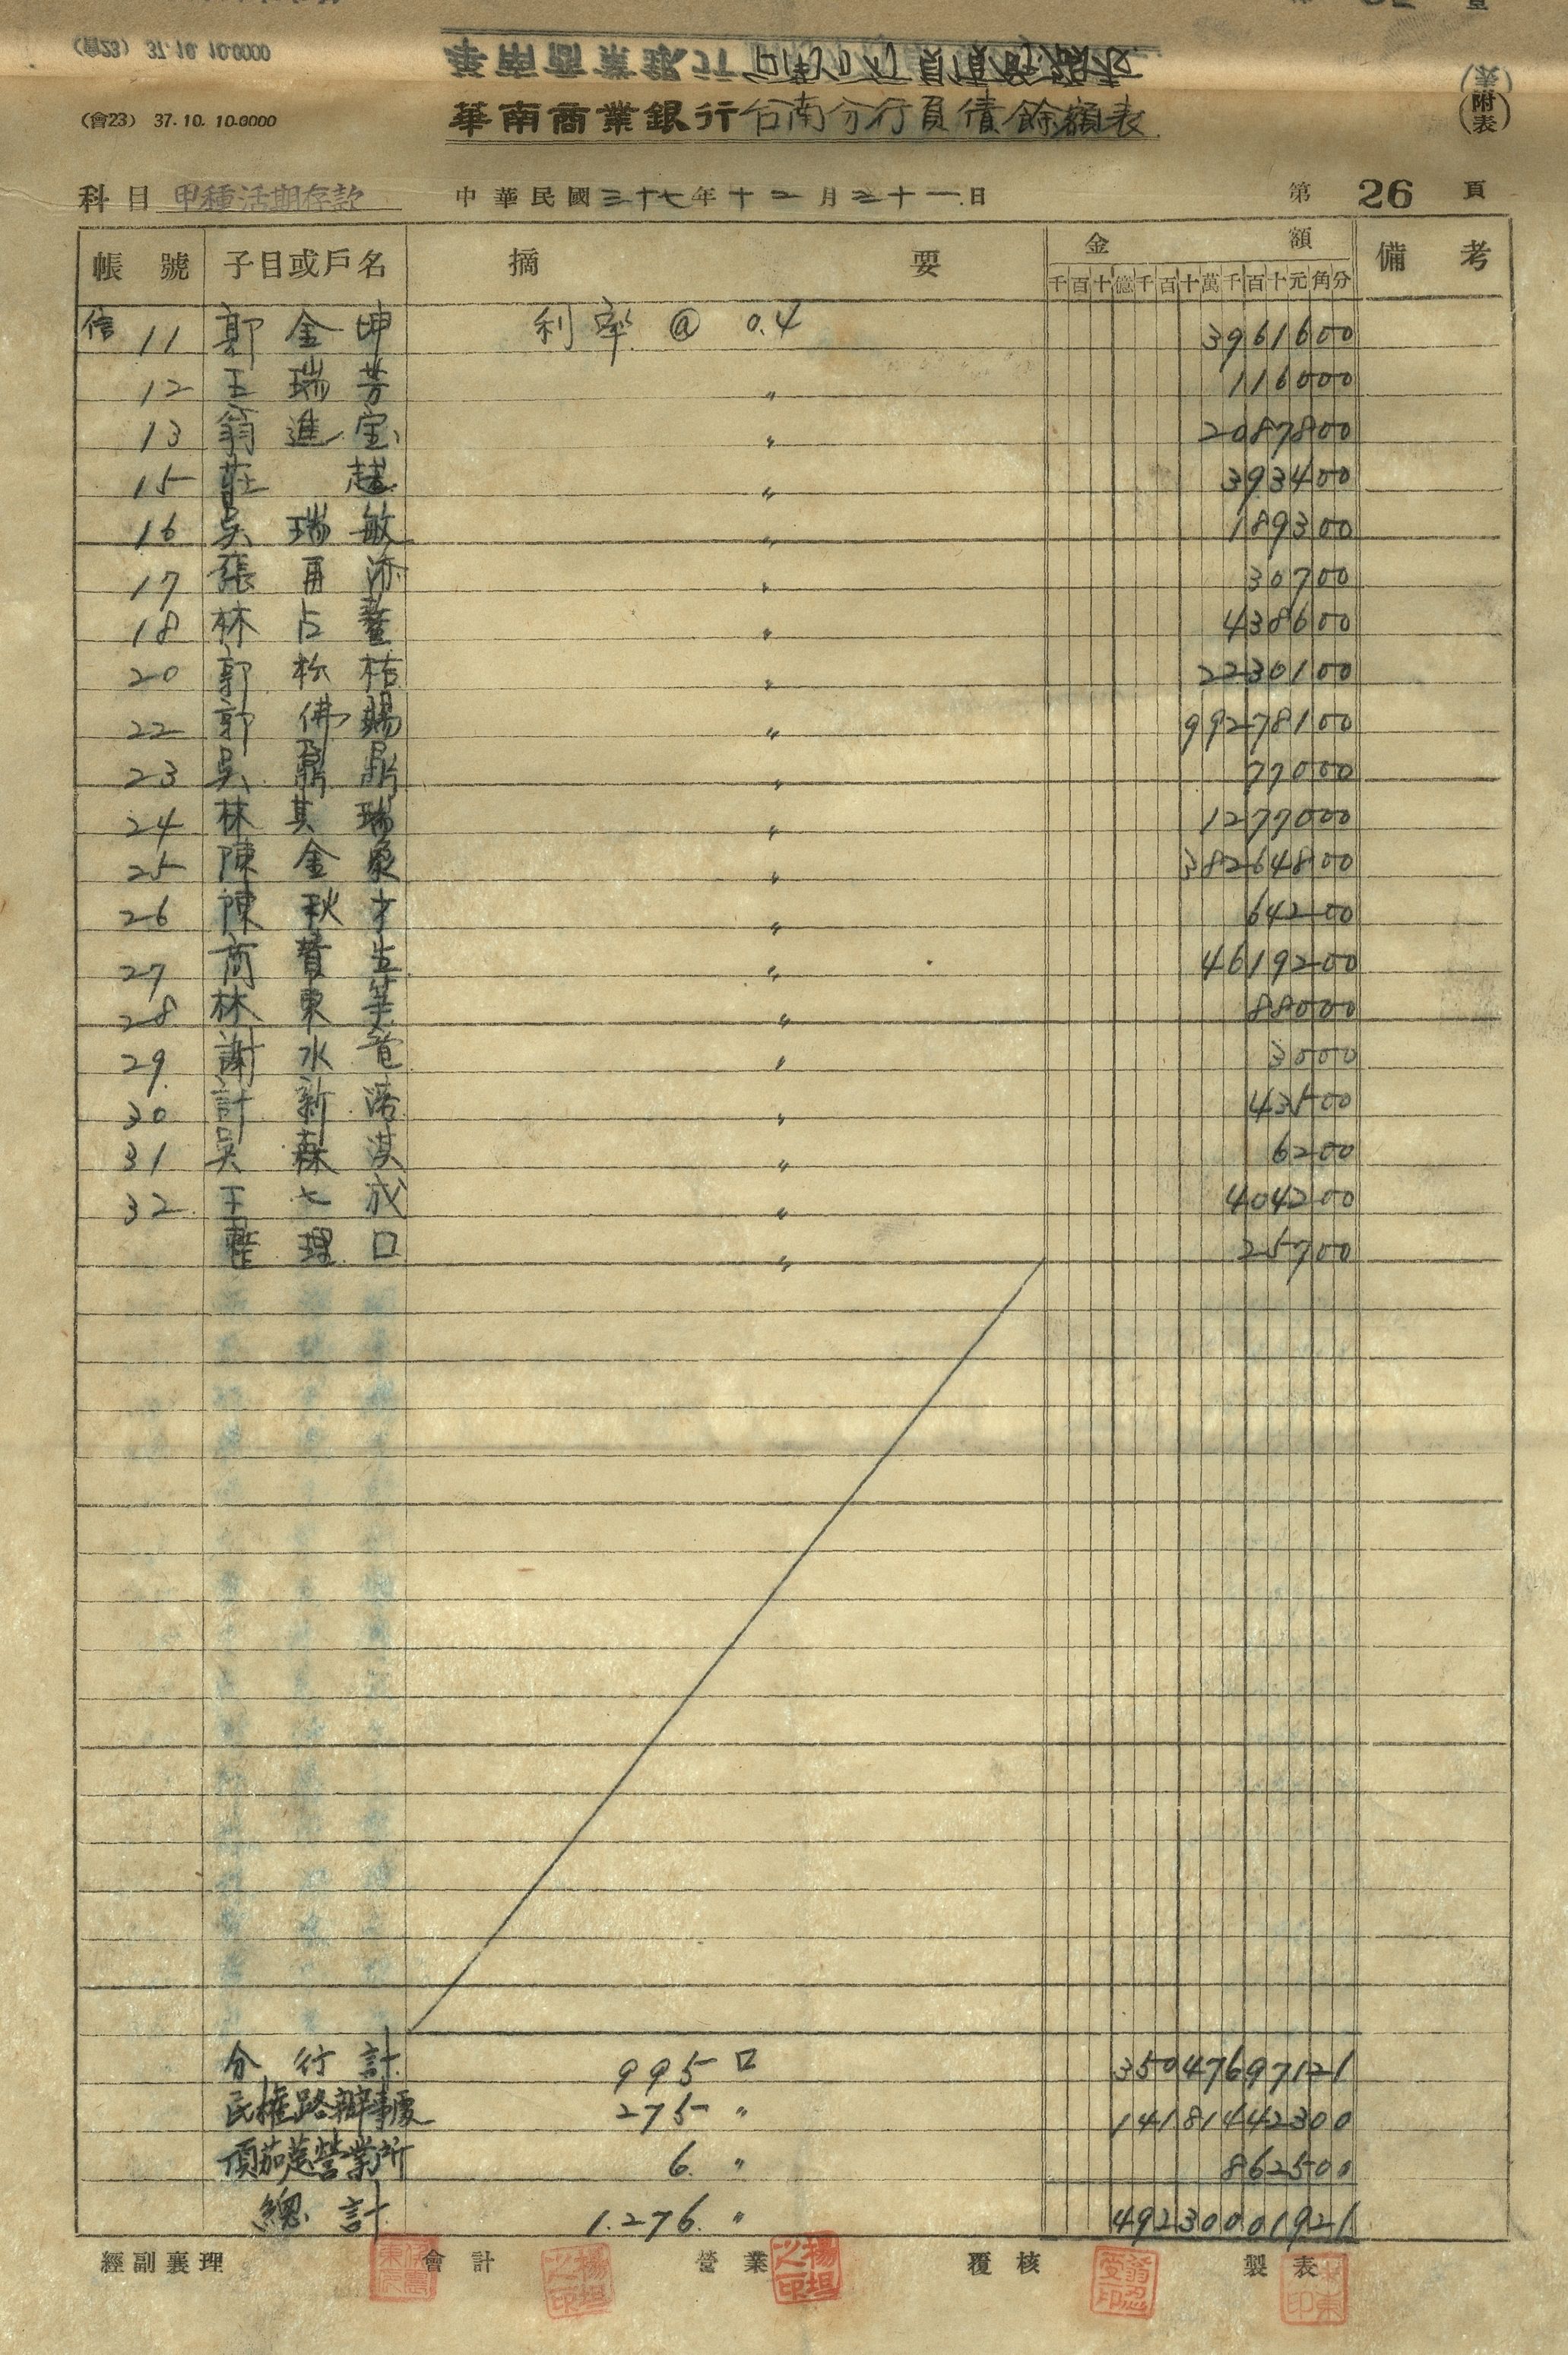 (會23) 37.10.10.0000
華南商業銀行台南分行負債餘額表
(附表)
科目 甲種活期存款 中華民國三十七年十二月三十一日 第 26 頁
帳號 子目或戶名 摘要 金額 備考
千百十億千百十萬千百十元角分
信 11 郭金坤 利率 @ 0.4 3961600
12 王瑞芳 〃 116000
13 翁進宝 〃 2087800
15 莊 〃 393400
16 吳瑞敏 〃 189300
17 張再添 〃 30700
18 林占鰲 〃 438600
20 郭松桔 〃 2230100
22 郭佛賜 〃 99278100
23 吳鼎 〃 77000
24 林其瑞 〃 1277000
25 陳金泉 〃 38264800
26 陳秋才 〃 64200
27 商賛生 〃 4619200
28 林東 〃 88000
29 謝水 〃 3000
30 計新 〃 43500
31 吳森淇 〃 6200
32 王七成 〃 404200
整理口 〃 25700
分行計 995口 35047697121
民權路辦事處 275〃 14181442300
頂茄萣營業所 6〃 862500
總計 1.276〃 49230001921
經副襄理 會計 營業 覆核 製表
楊坦之印
楊坦之印